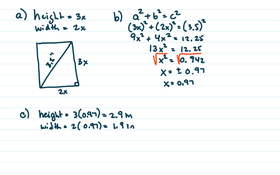 a) height = 3x
width = 2x
3.5"
3x
2x
b) a² + b² = c²
(3x)² + (2x)² = (3.5)²
9x² + 4x² = 12.25
13x² = 12.25
√x² = √0.942
x = ± 0.97
x = 0.97
c) height = 3(0.97) = 2.9 m
width = 2(0.97) = 1.9 in